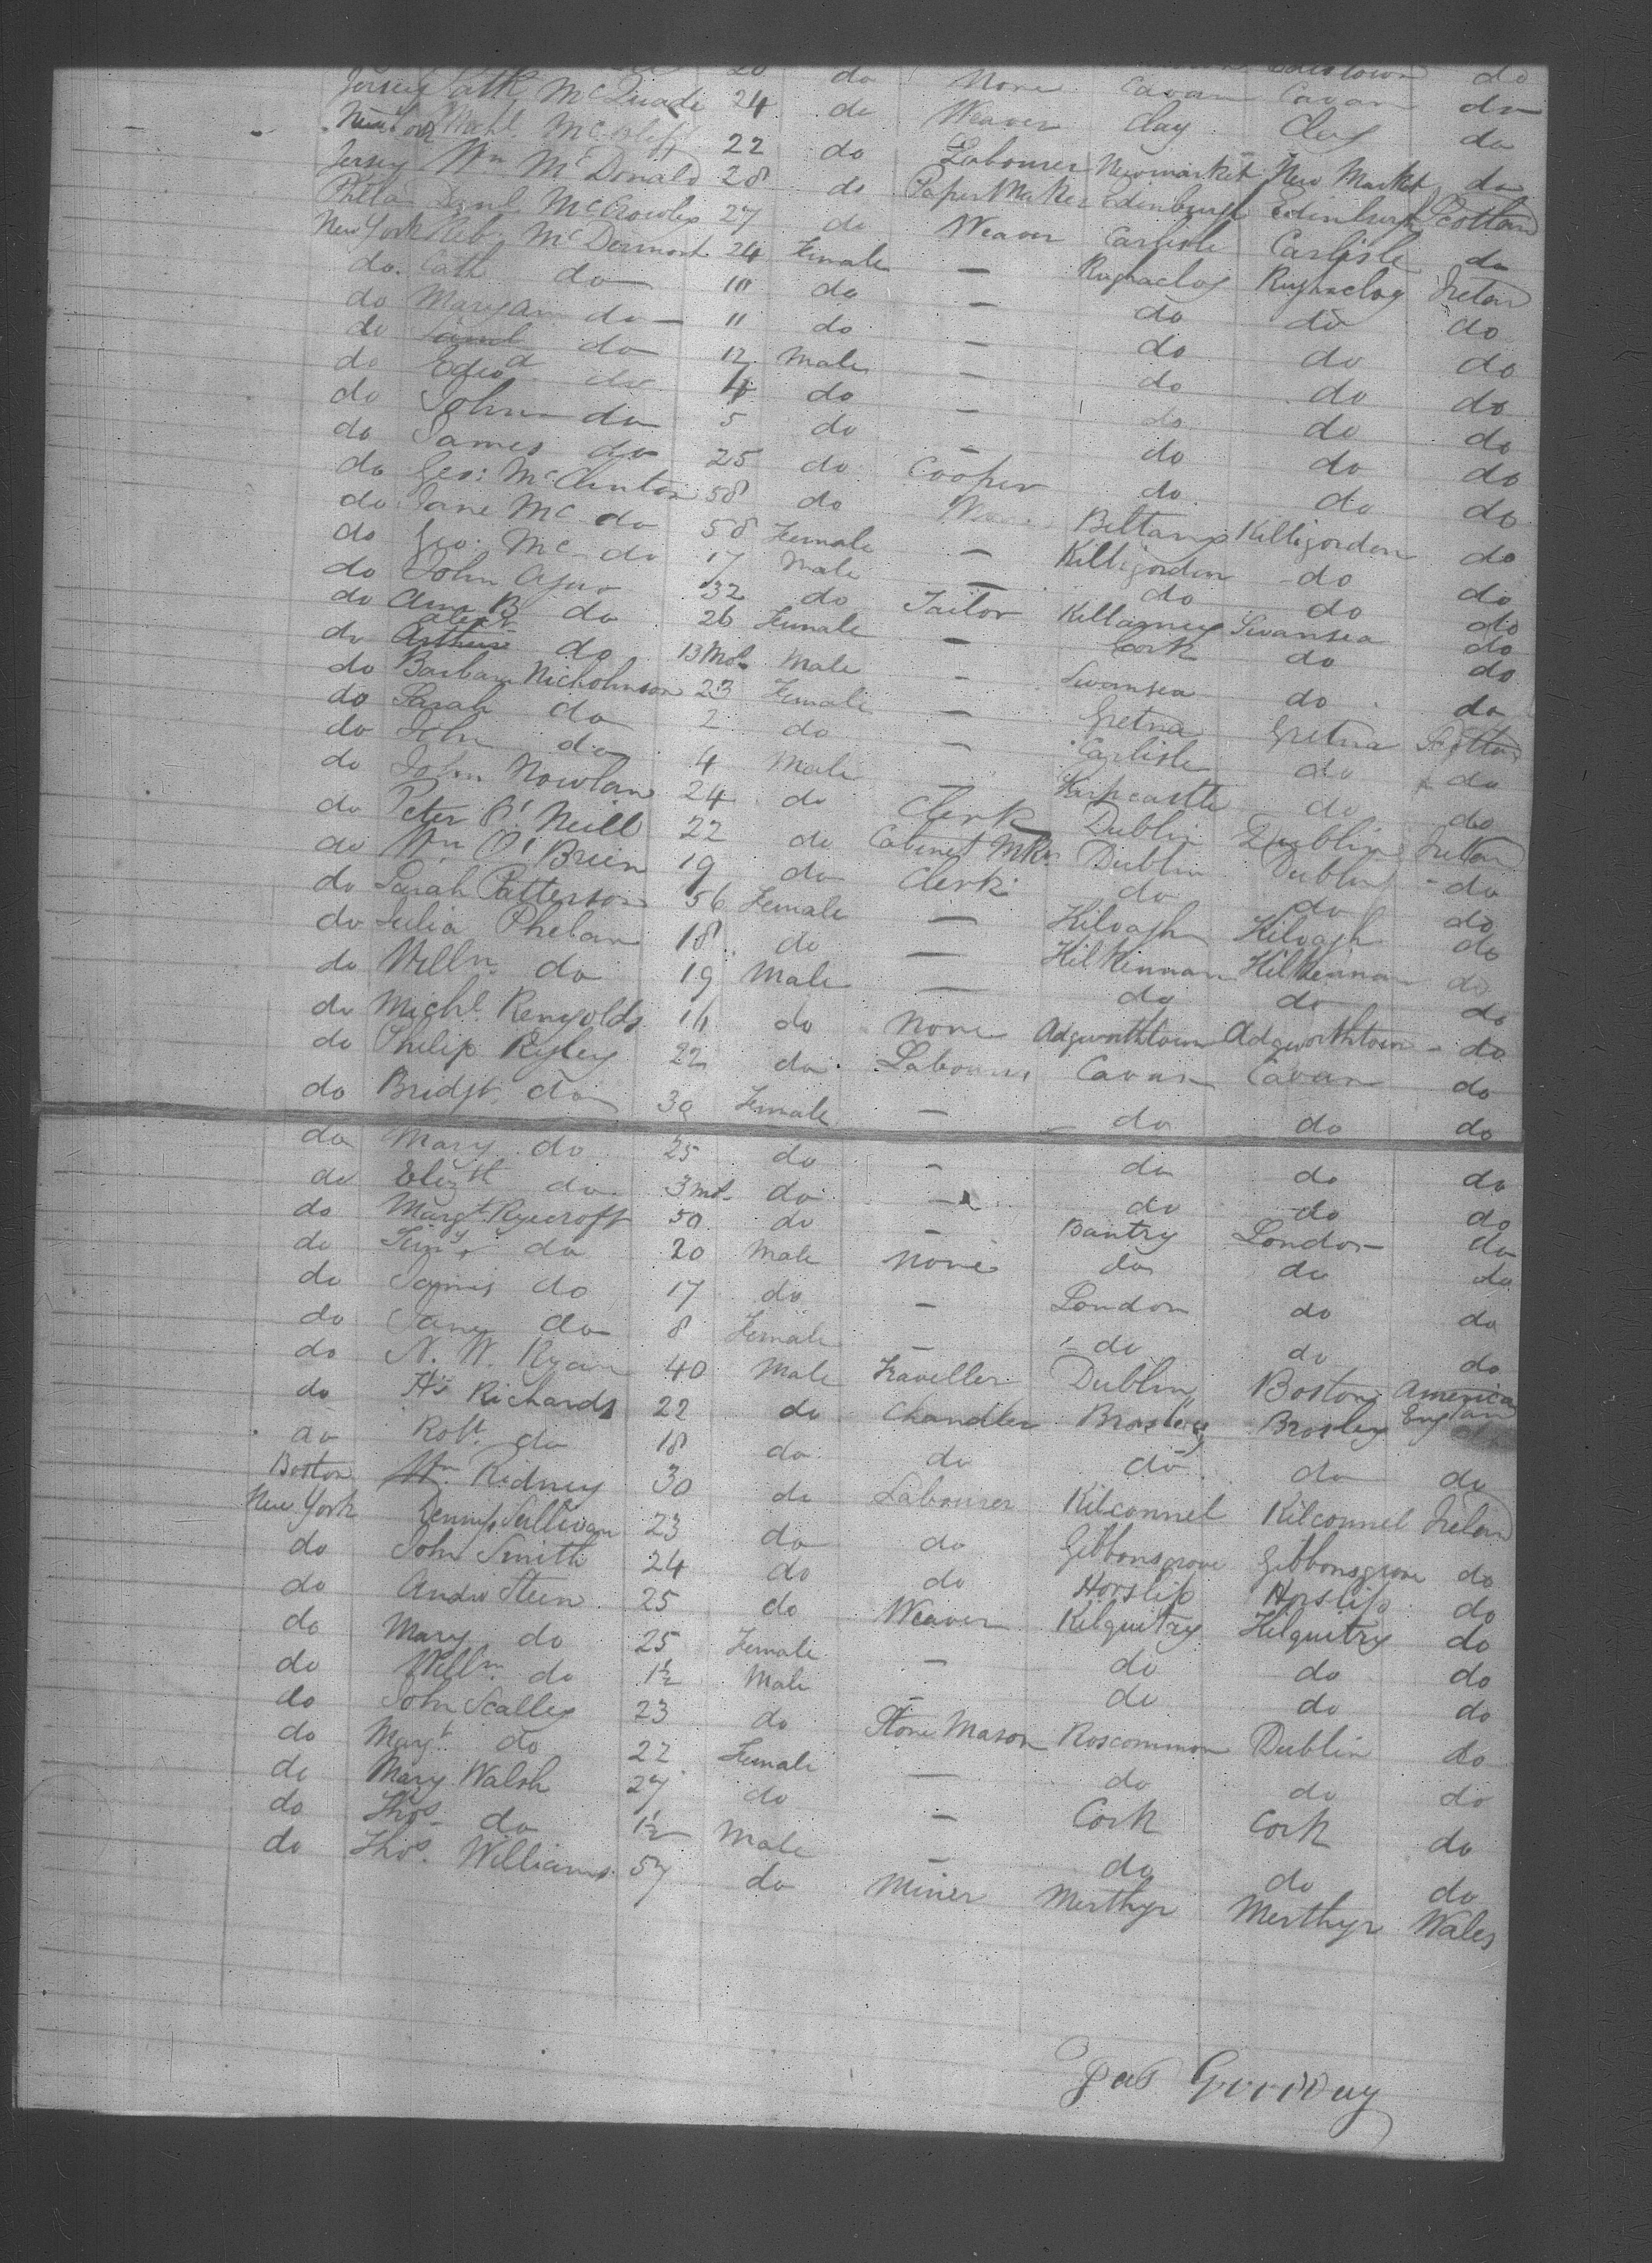 20 do do
Jersey Path McQuade 24 do None Cavan Cavan do
New York Mchl. 22 do Weaver Clay Clay do
Jersey Wm McDonald 28 do Labourer Newmarket New Market do
Phila Danl McCrowley 27 do Paper Maker Edinburgh Edinburgh Scotland
New York Reb. McDermott 24 Female Weaver Carlisle Carlisle do
do Cath do 10 do — Rughacloy Rughacloy Ireland
do Maryan do 11 do — do do do
do Saml do 12 Male — do do do
do Edwd do 4 do — do do do
do John do 5 do — do do do
do James do 25 do Cooper do do do
do Geo: McClinton 58 do do do do
do Jane Mc do 58 Female — Beltany Killigordon do
do Geo: Mc do 17 Male — Killigordon do do
do John 32 do Tailor do do do
do Ann B do 26 Female — Killarney Swansea do
do Alexr Arthur do 13 Mos Male — Cork do do
do Barbara Nicholnson 23 Female — Swansea do do
do Sarah do 2 do — Gretna Gretna Scotland
do John do 4 Male — Carlisle do do
do John Nowlan 24 do Clerk Harpcastle do do
do Peter O'Neill 22 do Cabinet Mkr Dublin Dublin Ireland
do Wm O'Brien 19 do Clerk Dublin Dublin do
do Sarah Patterson 56 Female — do do do
do Julia Phelan 18 do — Kilvagh Kilvagh do
do Willm do 19 Male — Kilkennan Kilkennan do
do Michl. Renyolds 14 do None do do do
do Philip Ryley 22 do Labourer Adgworthtown Adgworthtown do
do Bridgt do 30 Female — Cavan Cavan do
do do do
do Mary do 25 do — do do do
do Elizth do 3 mos do — do do do
do Margt Rycroft 50 do — Bantry London do
do Jimy do 20 Male None do do do
do James do 17 do — London do do
do Jane do 8 Female — do do do
do N. W. Ryan 40 Male Traveller Dublin Boston America
do Hs Richards 22 do Chandler Brosley Brosley England
do Robt do 18 do do do do do
Boston Wm Ridney 30 do Labourer Kilconnel Kilconnel Ireland
New York Dennis Sullivan 23 do do Gibbonsgrove Gibbonsgrove do
do John Smith 24 do do Horslip Horslip do
do Andw Steen 25 do Weaver Kilquitry Kilquitry do
do Mary do 25 Female — do do do
do Willm do 1½ Male — do do do
do John Scalley 23 do Stone Mason Roscommon Dublin do
do Margt do 22 Female — do do do
do Mary Walsh 27 do — Cork Cork do
do Thos do 1½ Male — do do do
do Thos. Williams 57 do Miner Merthyr Merthyr Wales